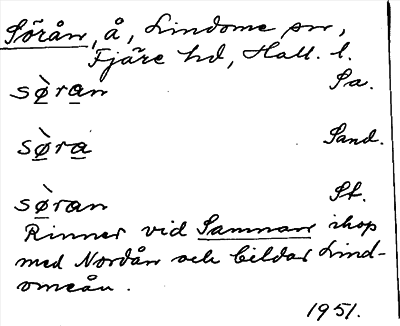 Sörån, å, Lindome sn,
Fjäre hd, Hall. l.
sø̀ran Sa.
sø̀ra Sand.
sø̀ran St.
Rinner vid Samnan ihop
med Nordån och bildar Lind-
omeån.
1951.